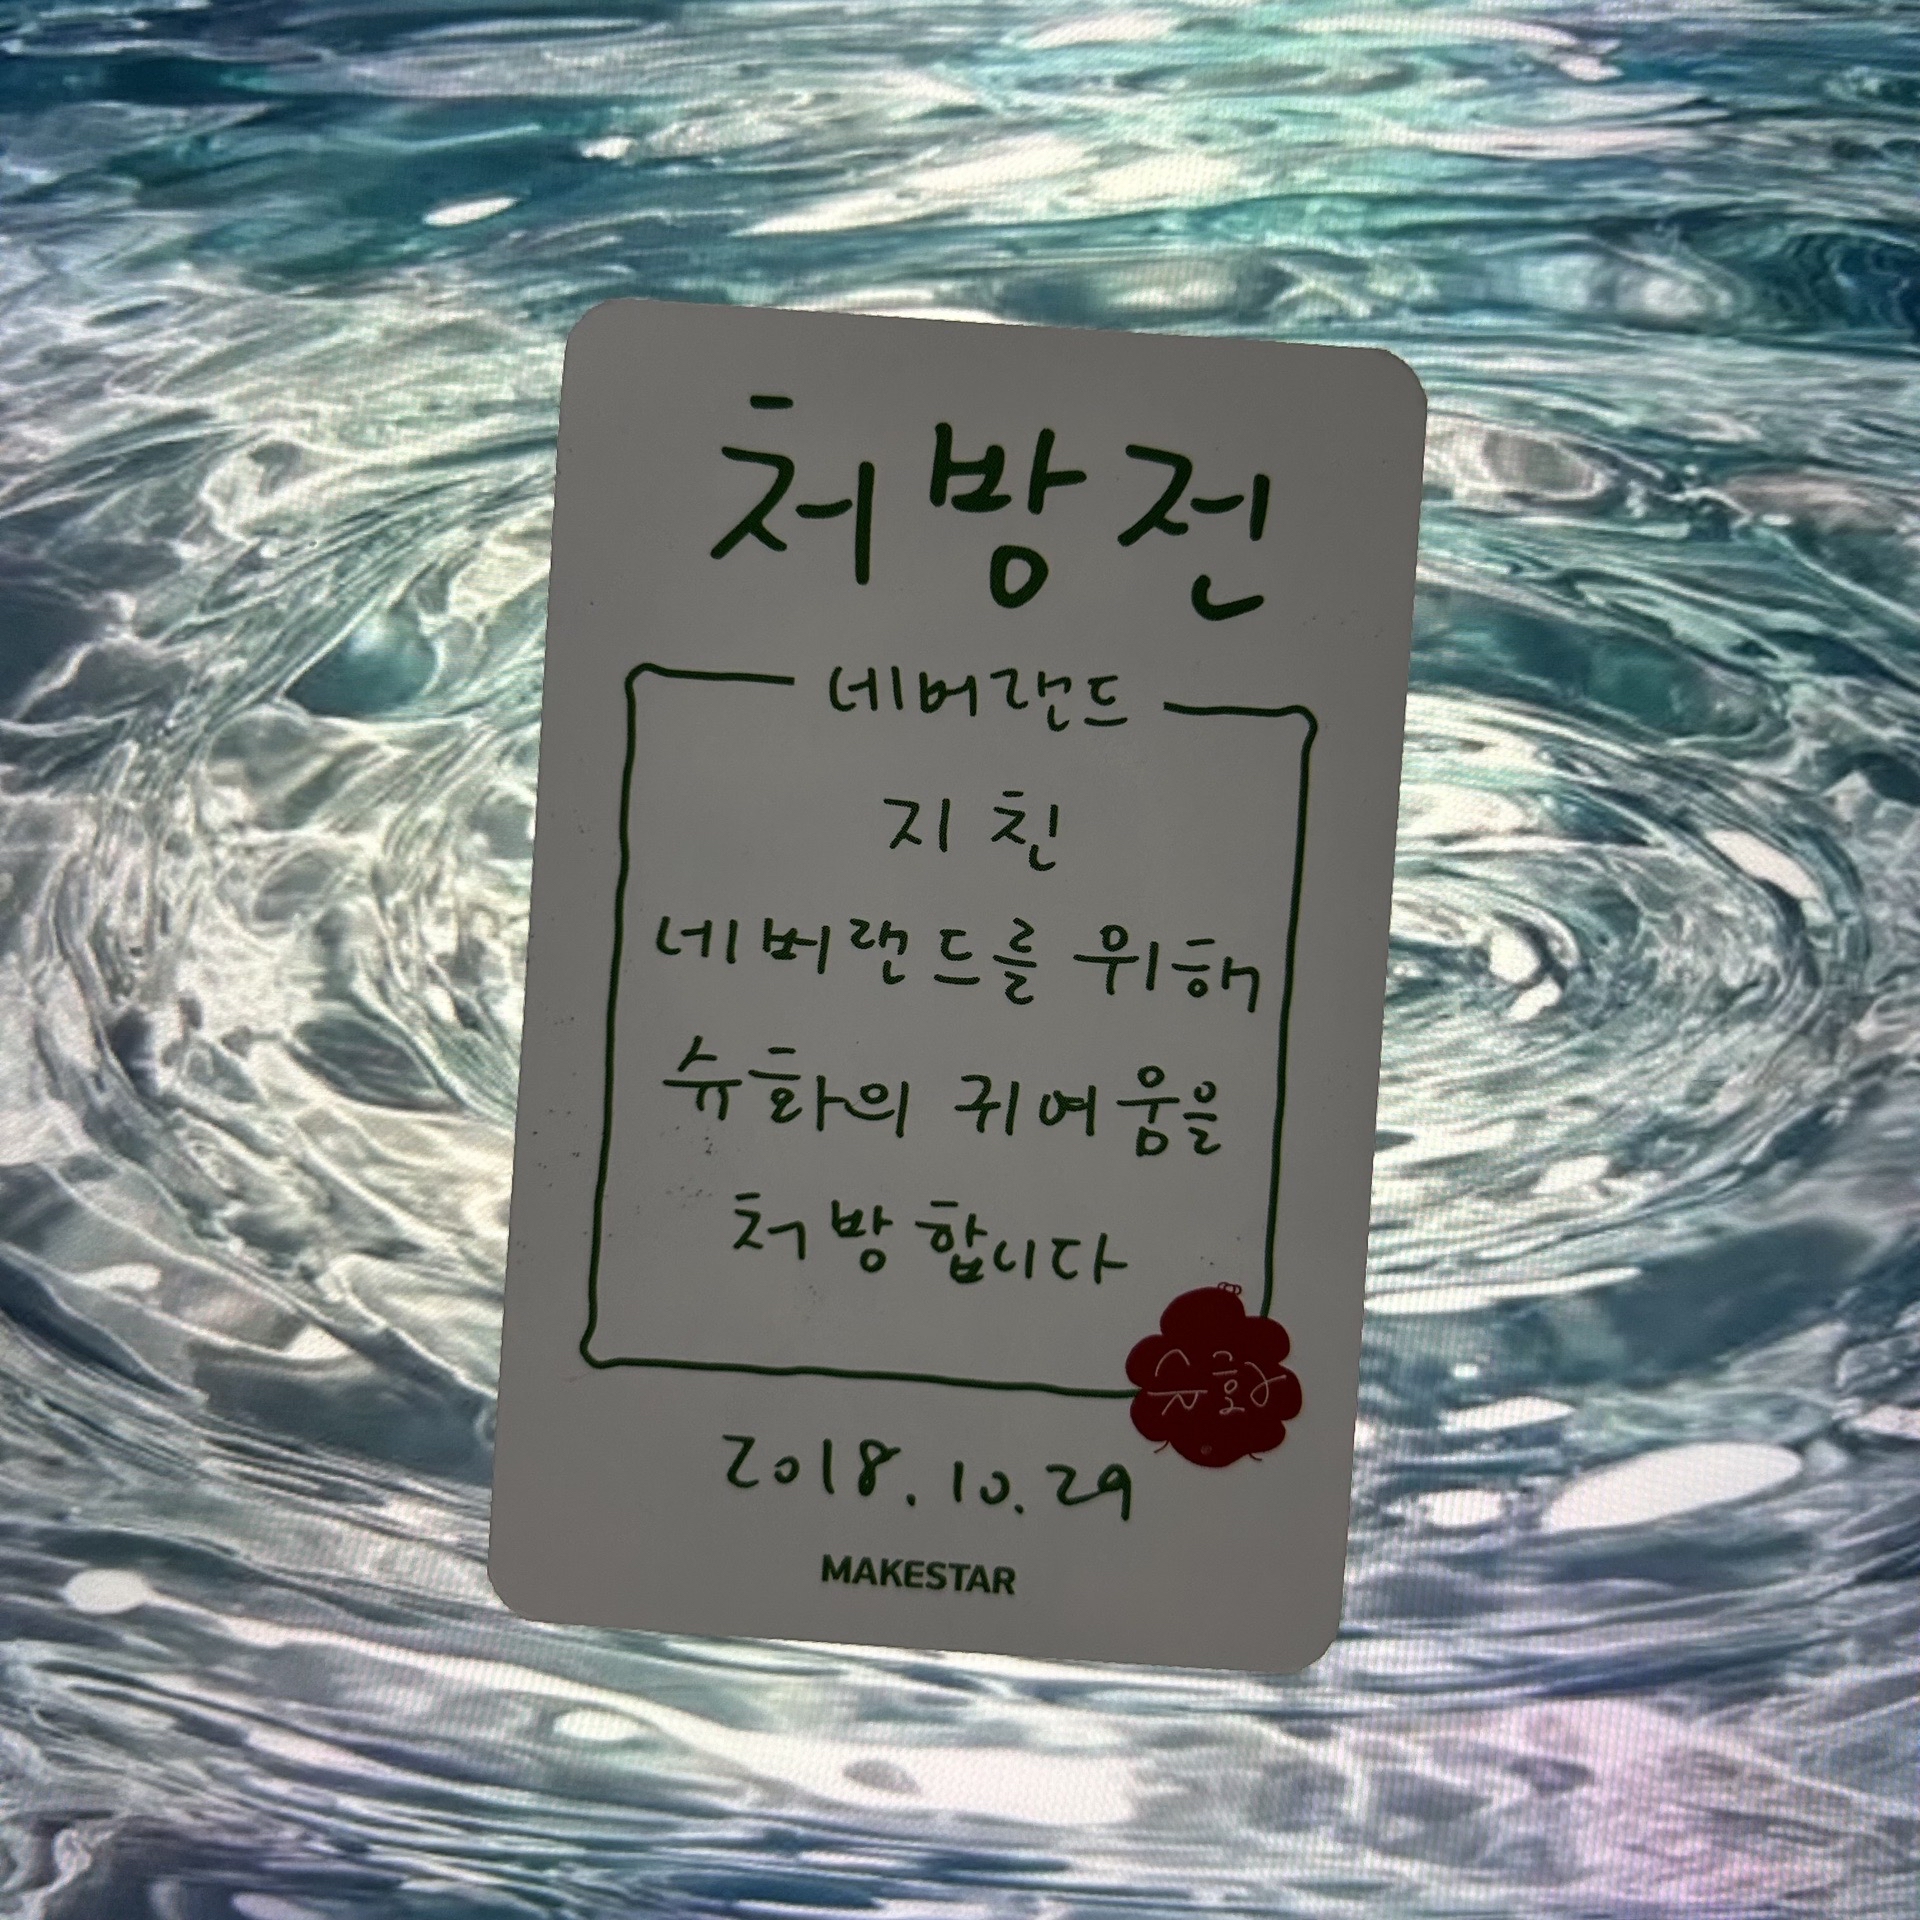 처방전
네버랜드
지친
네버랜드를 위해
슈화의 귀여움을
처방합니다
슈화
2018.10.29
MAKESTAR